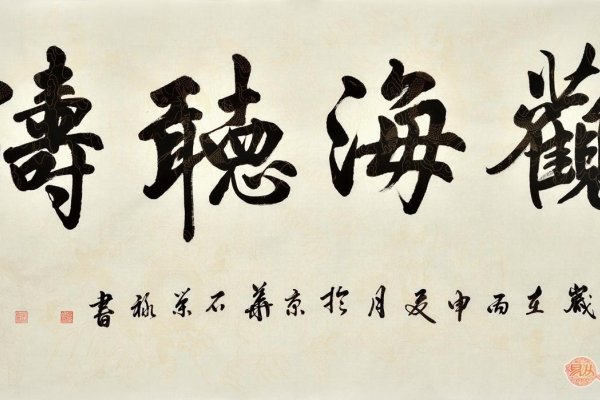 觀海聽濤
歲在丙申夏月於京華石荣禄書
易从